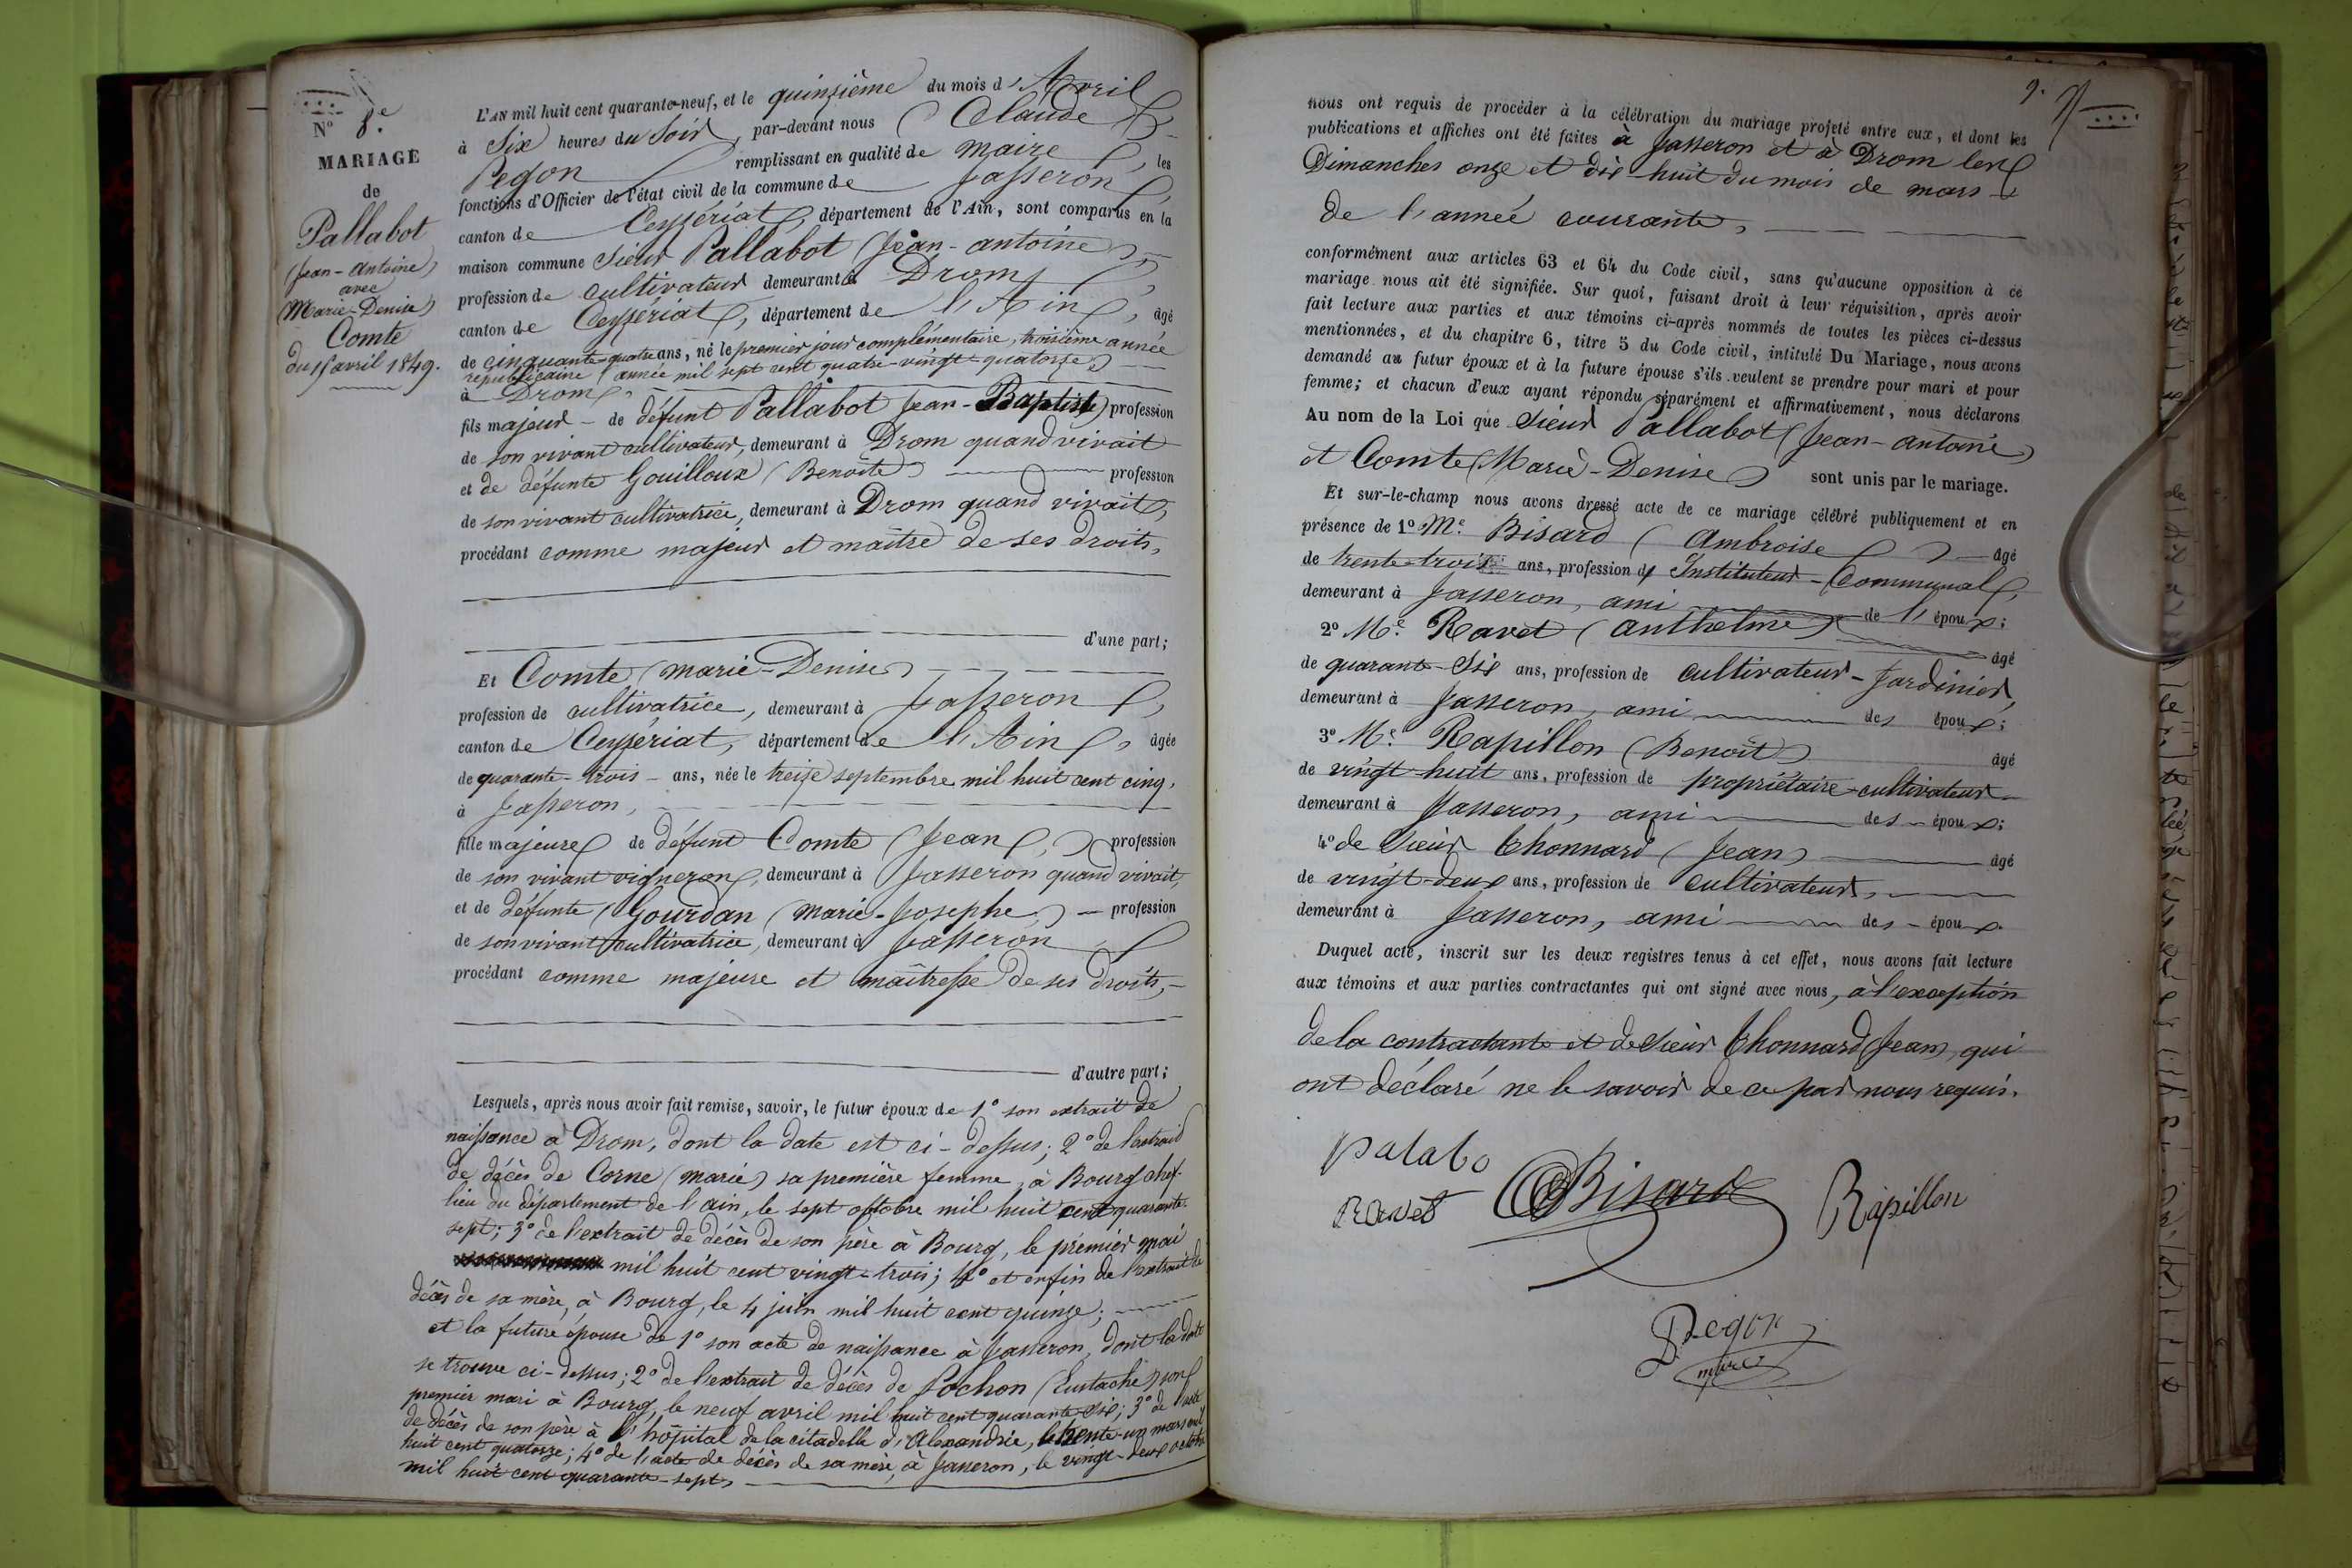 N° 8.e
MARIAGE
de
Pallabot
(Jean-Antoine)
avec
(Marie-Denise)
Comte
du 15 avril 1849.
L'AN mil huit cent quarante-neuf, et le quinzième du mois d'Avril
à Six heures du Soir, par-devant nous (Claude
Pegon remplissant en qualité de maire, les
fonctions d'Officier de l'état civil de la commune de Jasseron,
canton de Ceyzériat, département de l'Ain, sont comparus en la
maison commune Sieur Pallabot (Jean-antoine),
profession de cultivateur demeurant à Drom,
canton de Ceyzériat, département de l'Ain, âgé
de cinquante-quatre ans, né le premier jour complémentaire, troisième année
républicaine (année mil sept cent quatre-vingt-quatorze)
à Drom
fils majeur - de défunt Pallabot Jean-Baptiste) profession
de son vivant cultivateur, demeurant à Drom quand vivait
et de défunte Gouilloux (Benoite) profession
de son vivant cultivatrice, demeurant à Drom quand vivait,
procédant comme majeur et maître de ses droits,
d'une part;
Et Comte (marie-Denise)
profession de cultivatrice, demeurant à Jasseron,
canton de Ceyzériat, département de l'Ain, âgée
de quarante-trois - ans, née le treize septembre mil huit cent cinq,
à Jasseron,
fille majeure de défunt Comte (Jean,) profession
de son vivant vigneron, demeurant à Jasseron quand vivait,
et de défunte (Gourdan (marie-Josephe) - profession
de son vivant cultivatrice, demeurant à Jasseron
procédant comme majeure et maîtresse de ses droits,-
d'autre part;
Lesquels, après nous avoir fait remise, savoir, le futur époux de 1° son extrait de
naissance à Drom, dont la date est ci-dessus; 2° de l'extrait
de décès de Corne (marie) sa première femme, à Bourg chef-
lieu du département de l'ain, le sept octobre mil huit cent quarante-
sept; 3° de l'extrait de décès de son père à Bourg, le premier mai
mil huit cent vingt-trois; 4° et enfin de l'extrait de
décès de sa mère, à Bourg, le 4 juin mil huit cent quinze;
et la future épouse de 1° son acte de naissance à Jasseron, dont la date
se trouve ci-dessus; 2° de l'extrait de décès de Pochon (Eustache) son
premier mari à Bourg, le neuf avril mil huit cent quarante-six; 3° de l'acte
de décès de son père à l'hôpital de la citadelle d'Alexandrie, le trente-un mars mil
huit cent quatorze; 4° de l'acte de décès de sa mère, à Jasseron, le vingt-deux octobre
mil huit cent quarante-sept,
9.
nous ont requis de procéder à la célébration du mariage projeté entre eux, et dont les
publications et affiches ont été faites à Jasseron et à Drom les
Dimanches onze et dix-huit du mois de mars
de l'année courante,
conformément aux articles 63 et 64 du Code civil, sans qu'aucune opposition à ce
mariage nous ait été signifiée. Sur quoi, faisant droit à leur réquisition, après avoir
fait lecture aux parties et aux témoins ci-après nommés de toutes les pièces ci-dessus
mentionnées, et du chapitre 6, titre 5 du Code civil, intitulé Du Mariage, nous avons
demandé au futur époux et à la future épouse s'ils veulent se prendre pour mari et pour
femme; et chacun d'eux ayant répondu séparément et affirmativement, nous déclarons
Au nom de la Loi que Sieur Pallabot (Jean-antoine)
et Comte (Marie-Denise) sont unis par le mariage.
Et sur-le-champ nous avons dressé acte de ce mariage célébré publiquement et en
présence de 1° M.e Bisard (Ambroise) âgé
de trente-trois ans, profession d'Instituteur-Communal,
demeurant à Jasseron, ami de l'époux;
2° M.e Ravet (Anthelme) âgé
de quarante-Six ans, profession de cultivateur-Jardinier,
demeurant à Jasseron, ami des époux;
3° M.e Rapillon (Benoît) âgé
de vingt-huit ans, profession de propriétaire-cultivateur-
demeurant à Jasseron, ami des - époux;
4° de Sieur Chonnard (Jean) âgé
de vingt-deux ans, profession de cultivateur,
demeurant à Jasseron, ami des - époux.
Duquel acte, inscrit sur les deux registres tenus à cet effet, nous avons fait lecture
aux témoins et aux parties contractantes qui ont signé avec nous, à l'exception
de la contractante et de Sieur Chonnard (Jean), qui
ont déclaré ne le savoir de ce par nous requis.
palabo
Ravet Bisard Rapillon
Pegon
maire